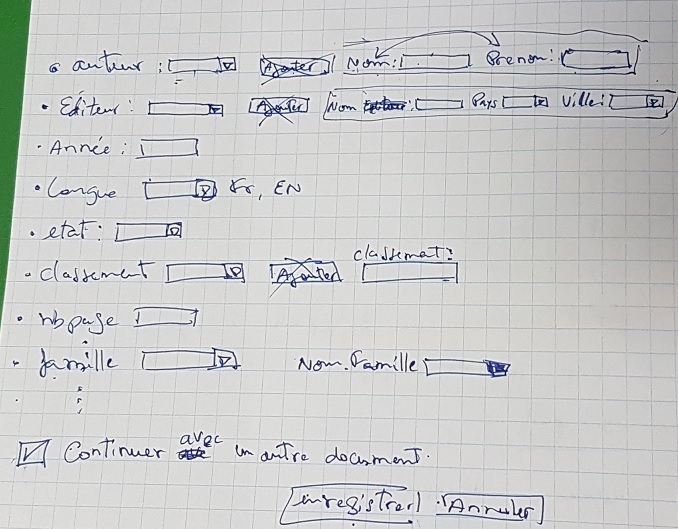 auteur : Ajouter Nom: Prenom:
Editeur: Ajouter Nom : Pays Ville:
Année :
Langue Fr, EN
etat:
classement Ajouter classemat:
nb page
famille Nom.Famille
Continuer avec un autre document.
enregistrer Annuler